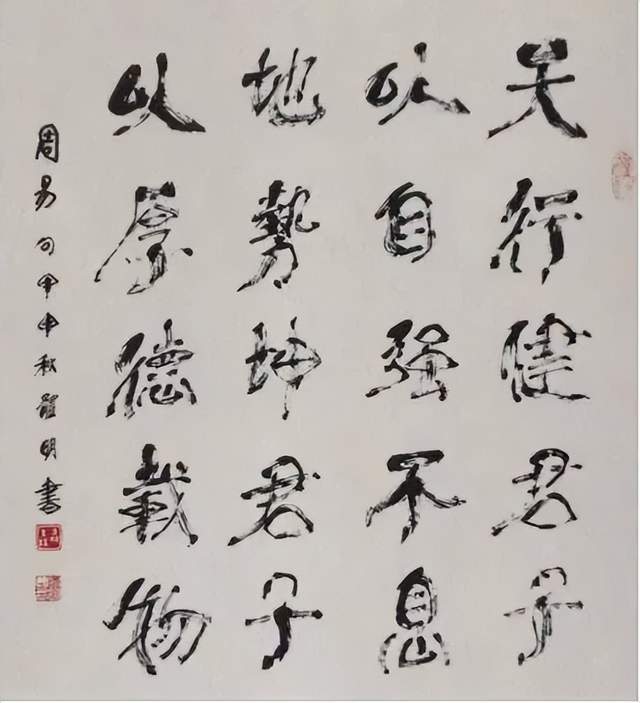 天行健君子
以自强不息
地勢坤君子
以厚德載物
周易句甲申秋瞿明書